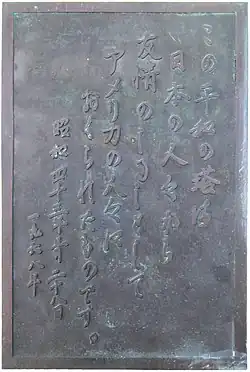 この平和の塔は
日本の人々から
友情のしるしとして
アメリカの人々に
おくられたものです。
昭和四十三年
一九六八年